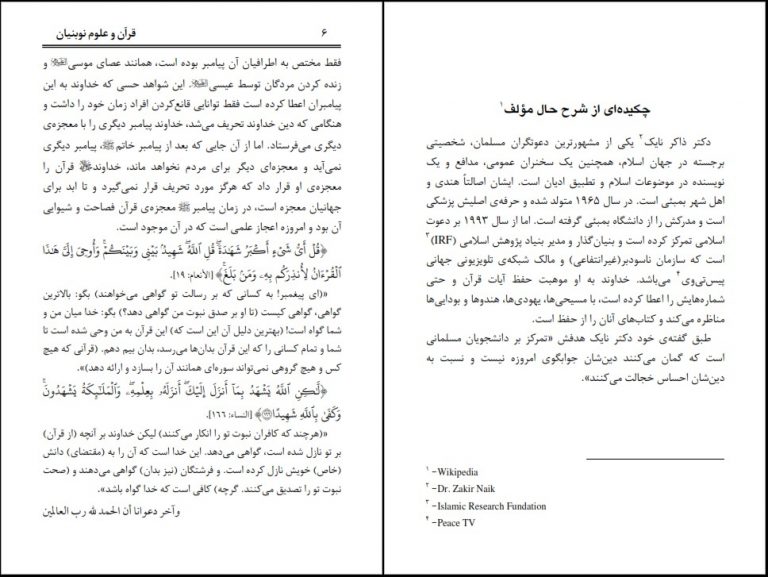 چکیده‌ای از شرح حال مؤلف۱
دکتر ذاکر نایک۲ یکی از مشهورترین دعوتگران مسلمان، شخصیتی
برجسته در جهان اسلام، همچنین یک سخنران عمومی، مدافع و یک
نویسنده در موضوعات اسلام و تطبیق ادیان است. ایشان اصالتاً هندی و
اهل شهر بمبئی است. در سال ۱۹۶۵ متولد شده و حرفه‌ی اصلیش پزشکی
است و مدرکش را از دانشگاه بمبئی گرفته است. اما از سال ۱۹۹۳ بر دعوت
اسلامی تمرکز کرده است و بنیان‌گذار و مدیر بنیاد پژوهش اسلامی (IRF)۳
است که سازمان ناسودبر(غیرانتفاعی) و مالک شبکه‌ی تلویزیونی جهانی
پیس‌تی‌وی۴ می‌باشد. خداوند به او موهبت حفظ آیات قرآن و حتی
شماره‌هایش را اعطا کرده است، با مسیحی‌ها، یهودی‌ها، هندوها و بودایی‌ها
مناظره می‌کند و کتاب‌های آنان را از حفظ است.
طبق گفته‌ی خود دکتر نایک هدفش «تمرکز بر دانشجویان مسلمانی
است که گمان می‌کنند دین‌شان جوابگوی امروزه نیست و نسبت به
دین‌شان احساس خجالت می‌کنند».
۱ -Wikipedia
۲ -Dr. Zakir Naik
۳ -Islamic Research Fundation
۴ -Peace TV
۶ قرآن و علوم نوبنیان
فقط مختص به اطرافیان آن پیامبر بوده است، همانند عصای موسی و
زنده کردن مردگان توسط عیسی. این شواهد حسی که خداوند به
پیامبران اعطا کرده است فقط توانایی قانع‌کردن افراد زمان خود را داشت و
هنگامی که دین خداوند تحریف می‌شد، خداوند پیامبر دیگری را با معجزه‌ی
دیگری می‌فرستاد. اما از آن جایی که بعد از پیامبر خاتمﷺ، پیامبر دیگری
نمی‌آید و معجزه‌ای دیگر برای مردم نخواهد ماند، خداوند قرآن را
معجزه‌ی او قرار داد که هرگز مورد تحریف قرار نمی‌گیرد و تا ابد برای
جهانیان معجزه است، در زمان پیامبرﷺ معجزه‌ی قرآن فصاحت و شیوایی
آن بود و امروزه اعجاز علمی است که در آن موجود است.
﴿قُلۡ أَيُّ شَيۡءٍ أَكۡبَرُ شَهَٰدَةٗۖ قُلِ ٱللَّهُۖ شَهِيدُۢ بَيۡنِي وَبَيۡنَكُمۡۚ وَأُوحِيَ إِلَيَّ هَٰذَا
ٱلۡقُرۡءَانُ لِأُنذِرَكُم بِهِۦ وَمَنۢ بَلَغَۚ﴾ [الأنعام: ۱۹].
«(ای پیغمبر! به کسانی که بر رسالت تو گواهی می‌خواهند) بگو: بالاترین
گواهی، گواهی کیست (تا او بر صدق نبوت من گواهی دهد؟) بگو: خدا میان من و
شما گواه است! (بهترین دلیل آن این است که) این قرآن به من وحی شده است تا
شما و تمام کسانی را که این قرآن بدان‌ها می‌رسد، بدان بیم دهم. (قرآنی که هیچ
کس و هیچ گروهی نمی‌تواند سوره‌ای همانند آن را بسازد و ارائه دهد)».
﴿لَّٰكِنِ ٱللَّهُ يَشۡهَدُ بِمَآ أَنزَلَ إِلَيۡكَۖ أَنزَلَهُۥ بِعِلۡمِهِۦۖ وَٱلۡمَلَٰٓئِكَةُ يَشۡهَدُونَۚ
وَكَفَىٰ بِٱللَّهِ شَهِيدًا١٦٦﴾ [النساء: ۱۶۶].
«(هرچند که کافران نبوت تو را انکار می‌کنند) لیکن خداوند بر آنچه (از قرآن)
بر تو نازل شده است، گواهی می‌دهد. این خدا است که آن را به (مقتضای) دانش
(خاص) خویش نازل کرده است. و فرشتگان (نیز بدان) گواهی می‌دهند و (صحت
نبوت تو را تصدیق می‌کنند. گرچه) کافی است که خدا گواه باشد».
وآخر دعوانا أن الحمد لله رب العالمین